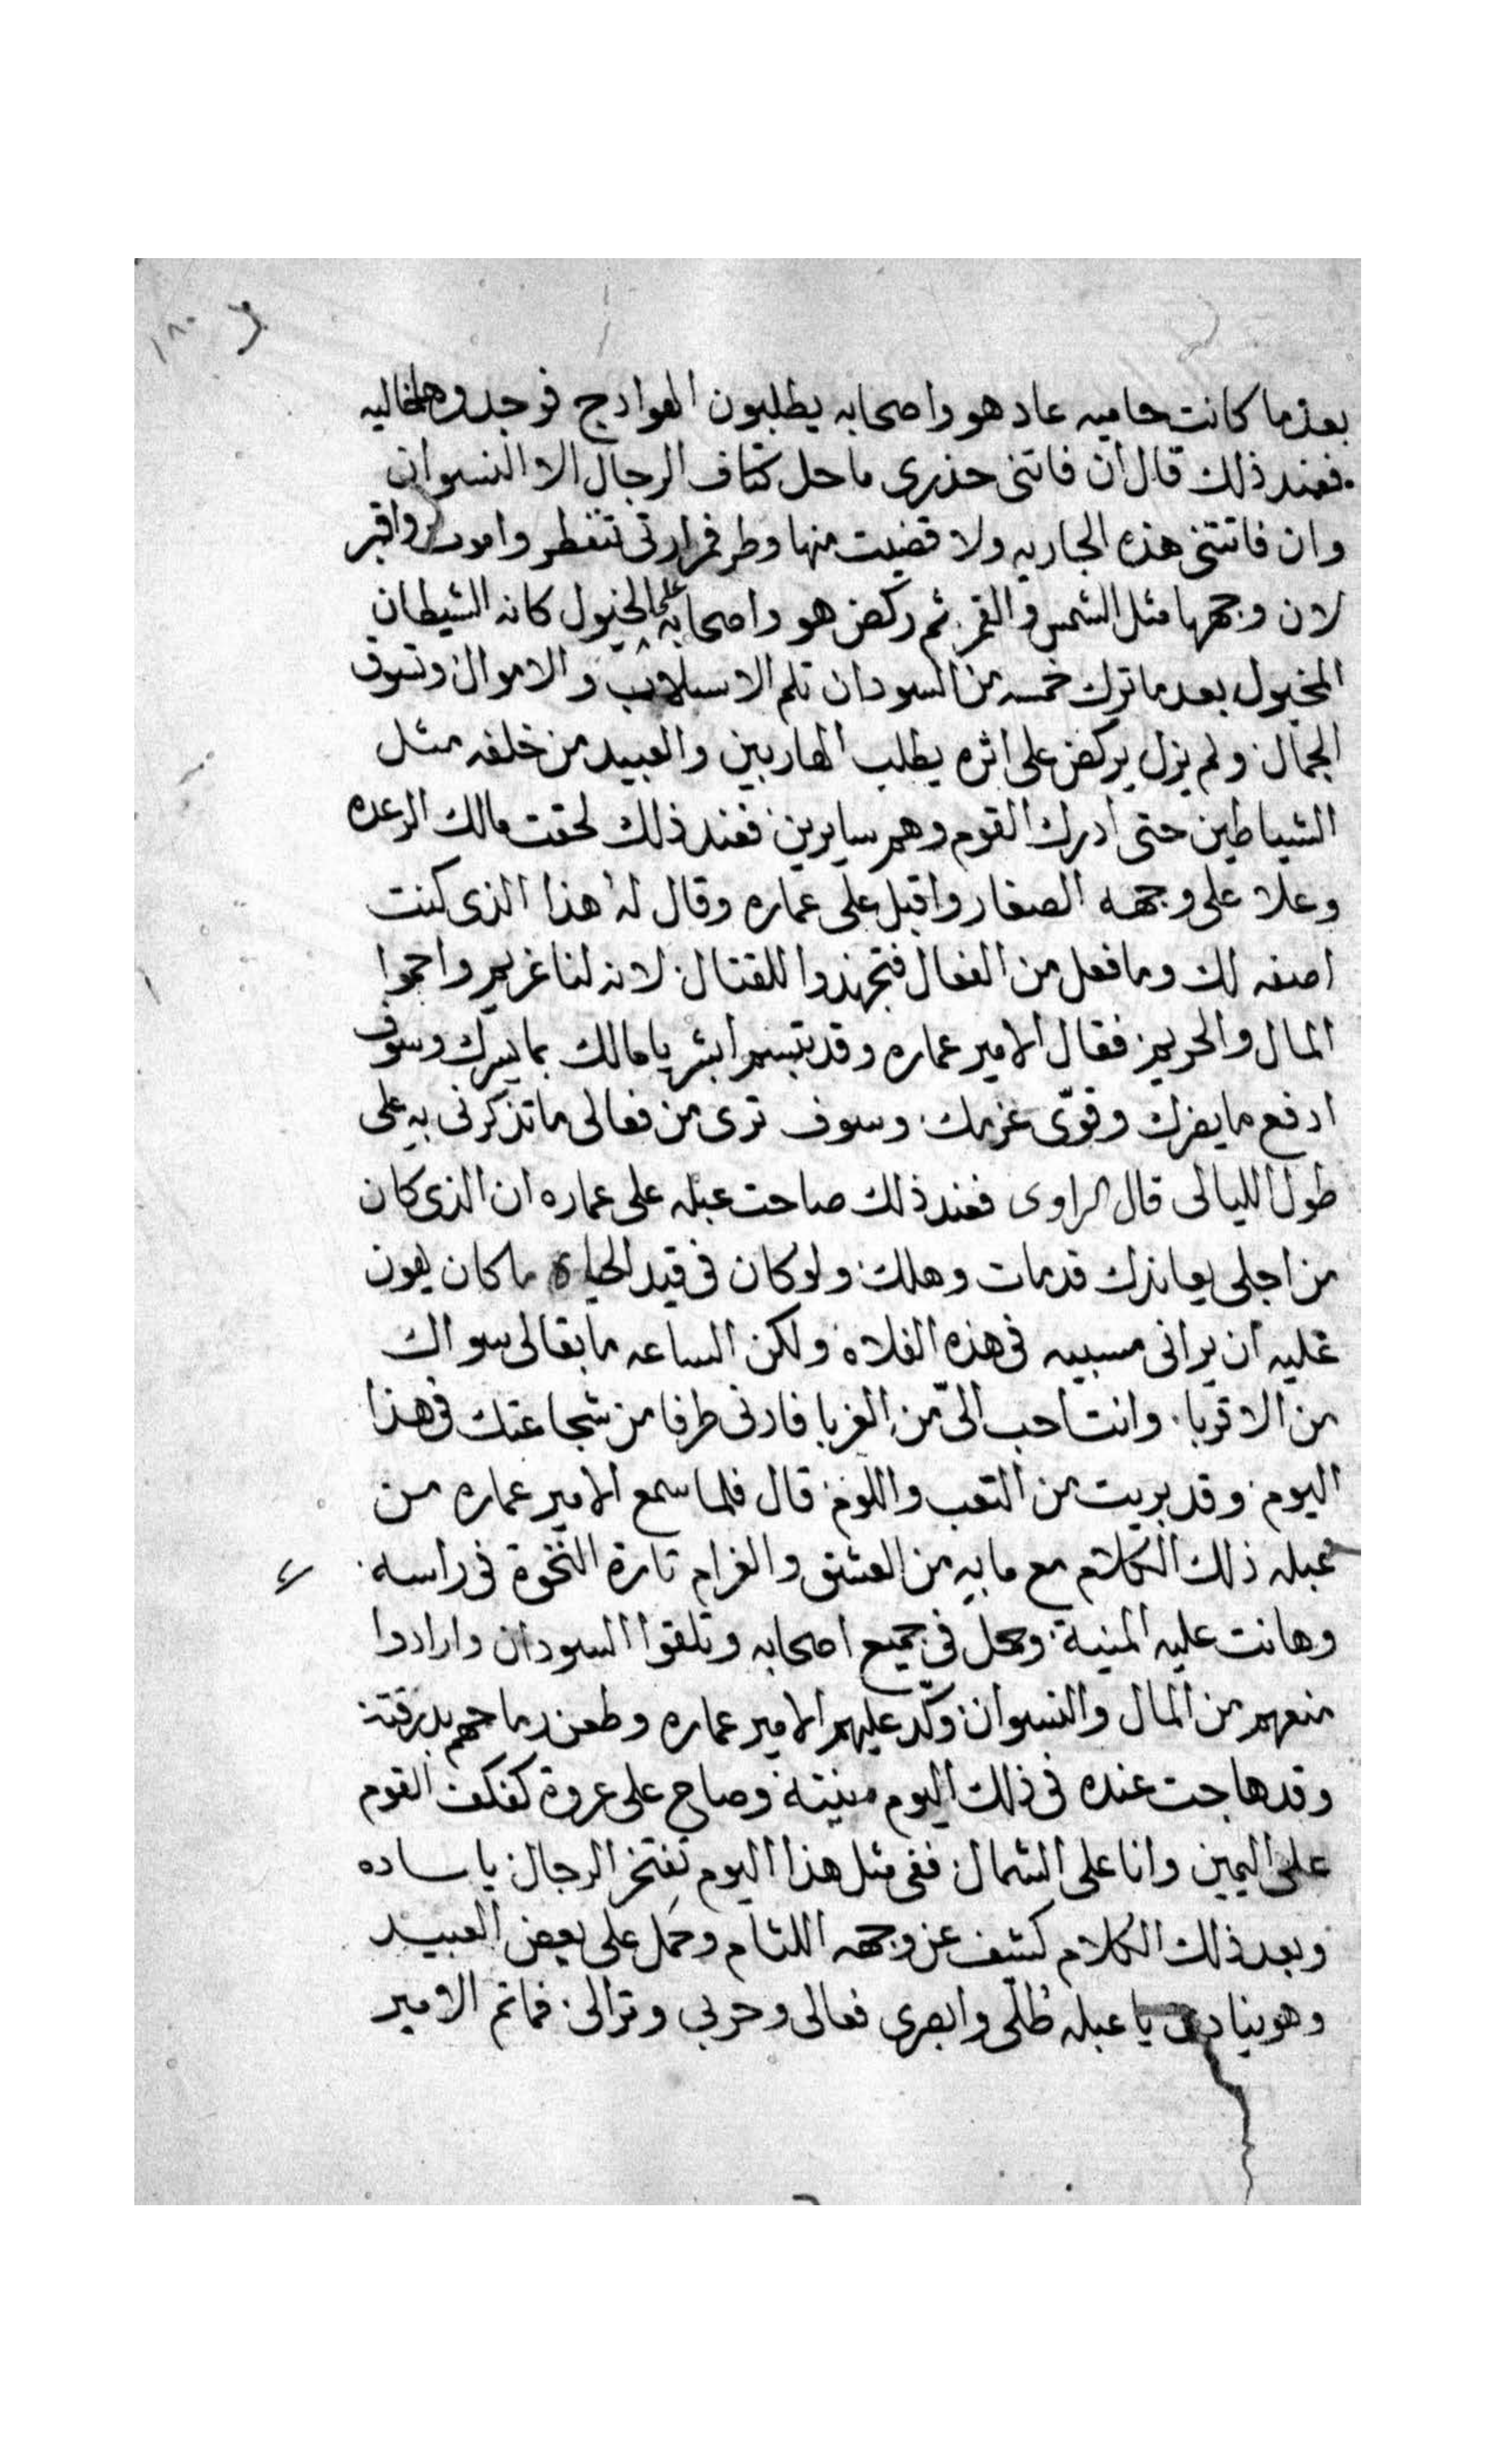 ١٨٠
بعدما كانت حاميه عاد هو واصحابه يطلبون الهوادج فوجدوها خاليه
فعند ذلك قال ان فاتنى حذرى ما حل كتاف الرجال الا النسوان
وان فاتتنى هذه الجاريه ولا قضيت منها وطر فمرارتى تنفطر واموت واقبر
لان وجهها مثل الشمس والقمر ثم ركض هو واصحابه على الخيول كانه الشيطان
المخبول بعد ما ترك خمسه من السودان تلم الاسلاب والاموال وتسوق
الجمال ولم يزل يركض على اثره يطلب الهاربين والعبيد من خلفه مثل
الشياطين حتى ادرك القوم وهم سايرين فعند ذلك لحقت مالك الرعده
وعلا على وجهه الصفار واقبل على عماره وقال له هذا الذى كنت
اصفه لك وما فعل من الفعال فتجهزوا للقتال لانه لنا غريم واحموا
المال والحريم فقال الامير عماره وقد تبسم ابشر يا مالك بما يسرك وسوف
ادفع ما يضرك وقوّى عزمك وسوف ترى من فعالى ما تذكرنى به على
طول الليالى قال الراوى فعند ذلك صاحت عبله على عماره ان الذى كان
من اجلى يعاندك قد مات وهلك ولو كان فى قيد الحياة ما كان يهون
عليه ان يرانى مسبيه فى هذه الفلاه ولكن الساعه ما بقا لى سواك
من الاقربا وانت احب الىّ من الغربا فارنى طرفا من شجاعتك فى هذا
اليوم وقد بريت من التعب واللوم قال فلما سمع الامير عماره من
عبله ذلك الكلام مع ما به من العشق والغرام تارة النخوة فى راسه
وهانت عليه المنية وحمل فى جميع اصحابه وتلقوا السودان وارادوا
منعهم من المال والنسوان وكّد عليهم الامير عماره وطعن رماحهم بدرقته
وقد هاجت عنده فى ذلك اليوم منيته وصاح على عروة كفكف القوم
على اليمين وانا على الشمال ففى مثل هذا اليوم تفتخر الرجال يا ساده
وبعد ذلك الكلام كشف عن وجهه اللثام وحمل على بعض العبيد
وهو ينادى يا عبله طُلّى وابصرى فعالى وحربى ونزالى فما تم الامير